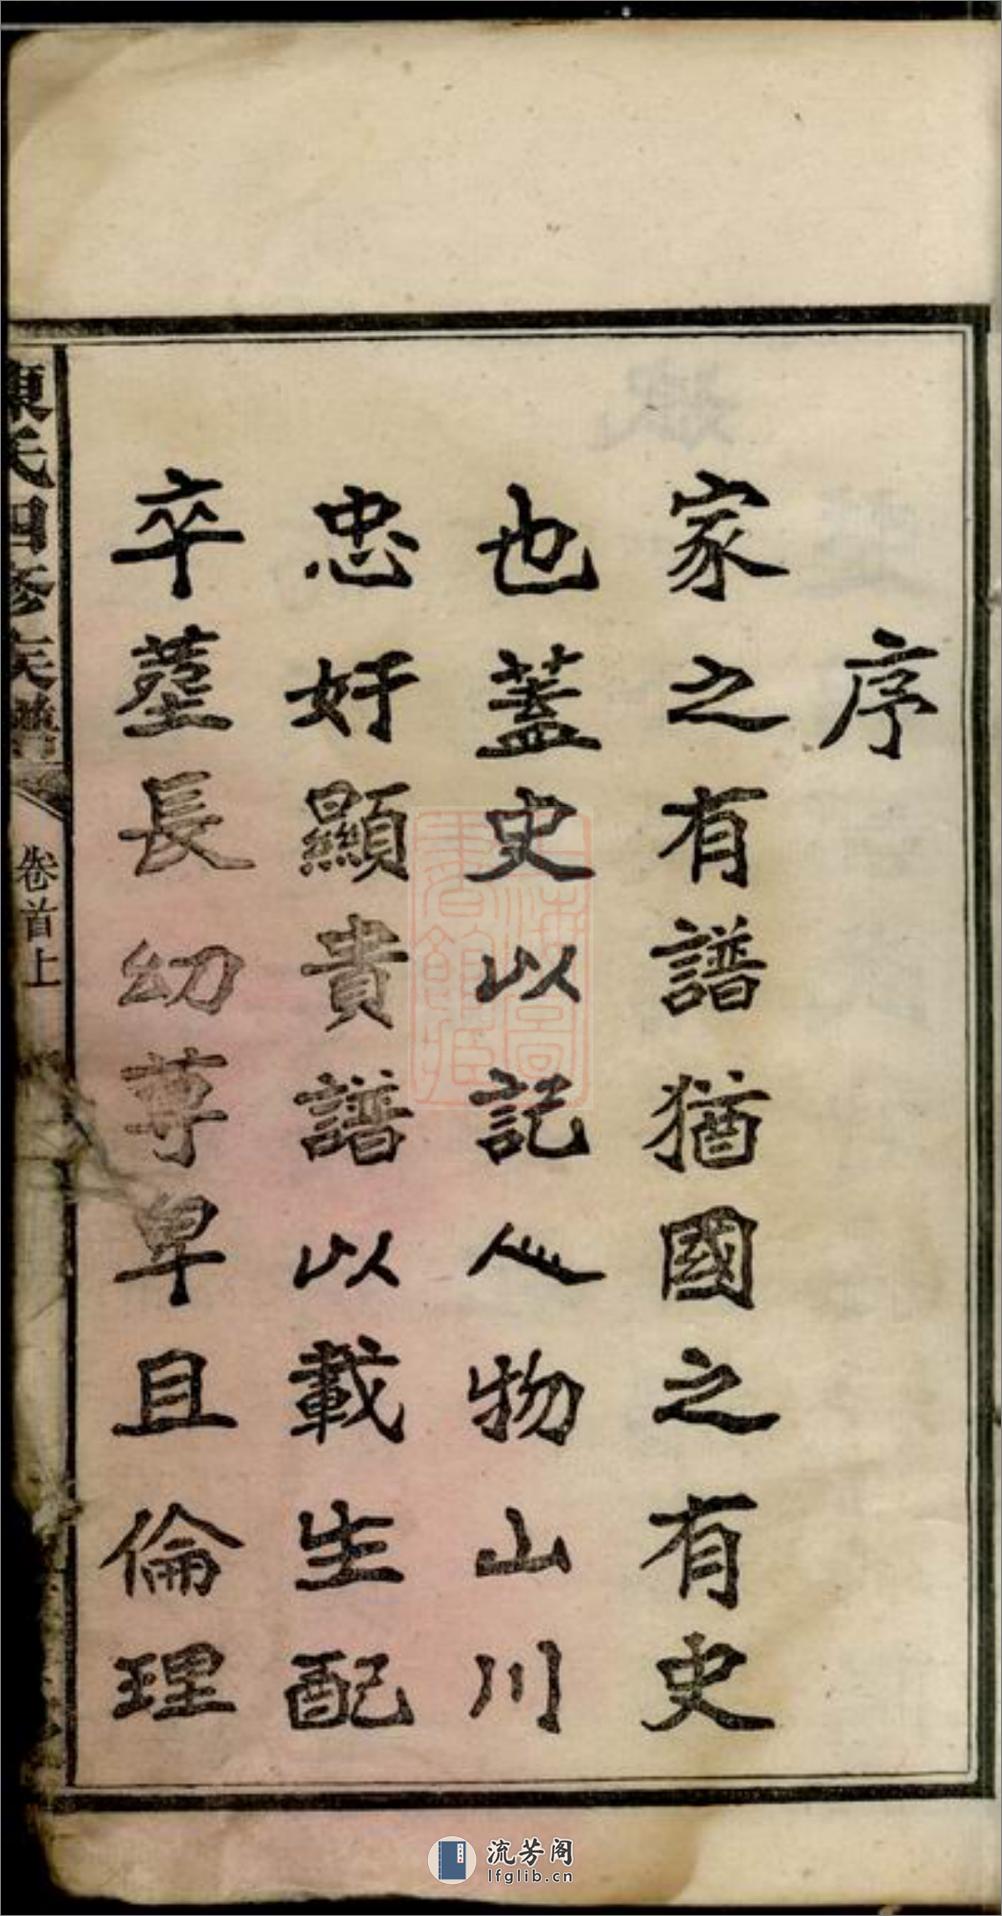 序
家之有譜猶國之有史
也蓋史以記人物山川
忠奸顯貴譜以載生配
卒塟長幼尊卑且倫理
陳氏四修族譜
卷首上
上海圖書館藏
流芳阁
lfglib.cn